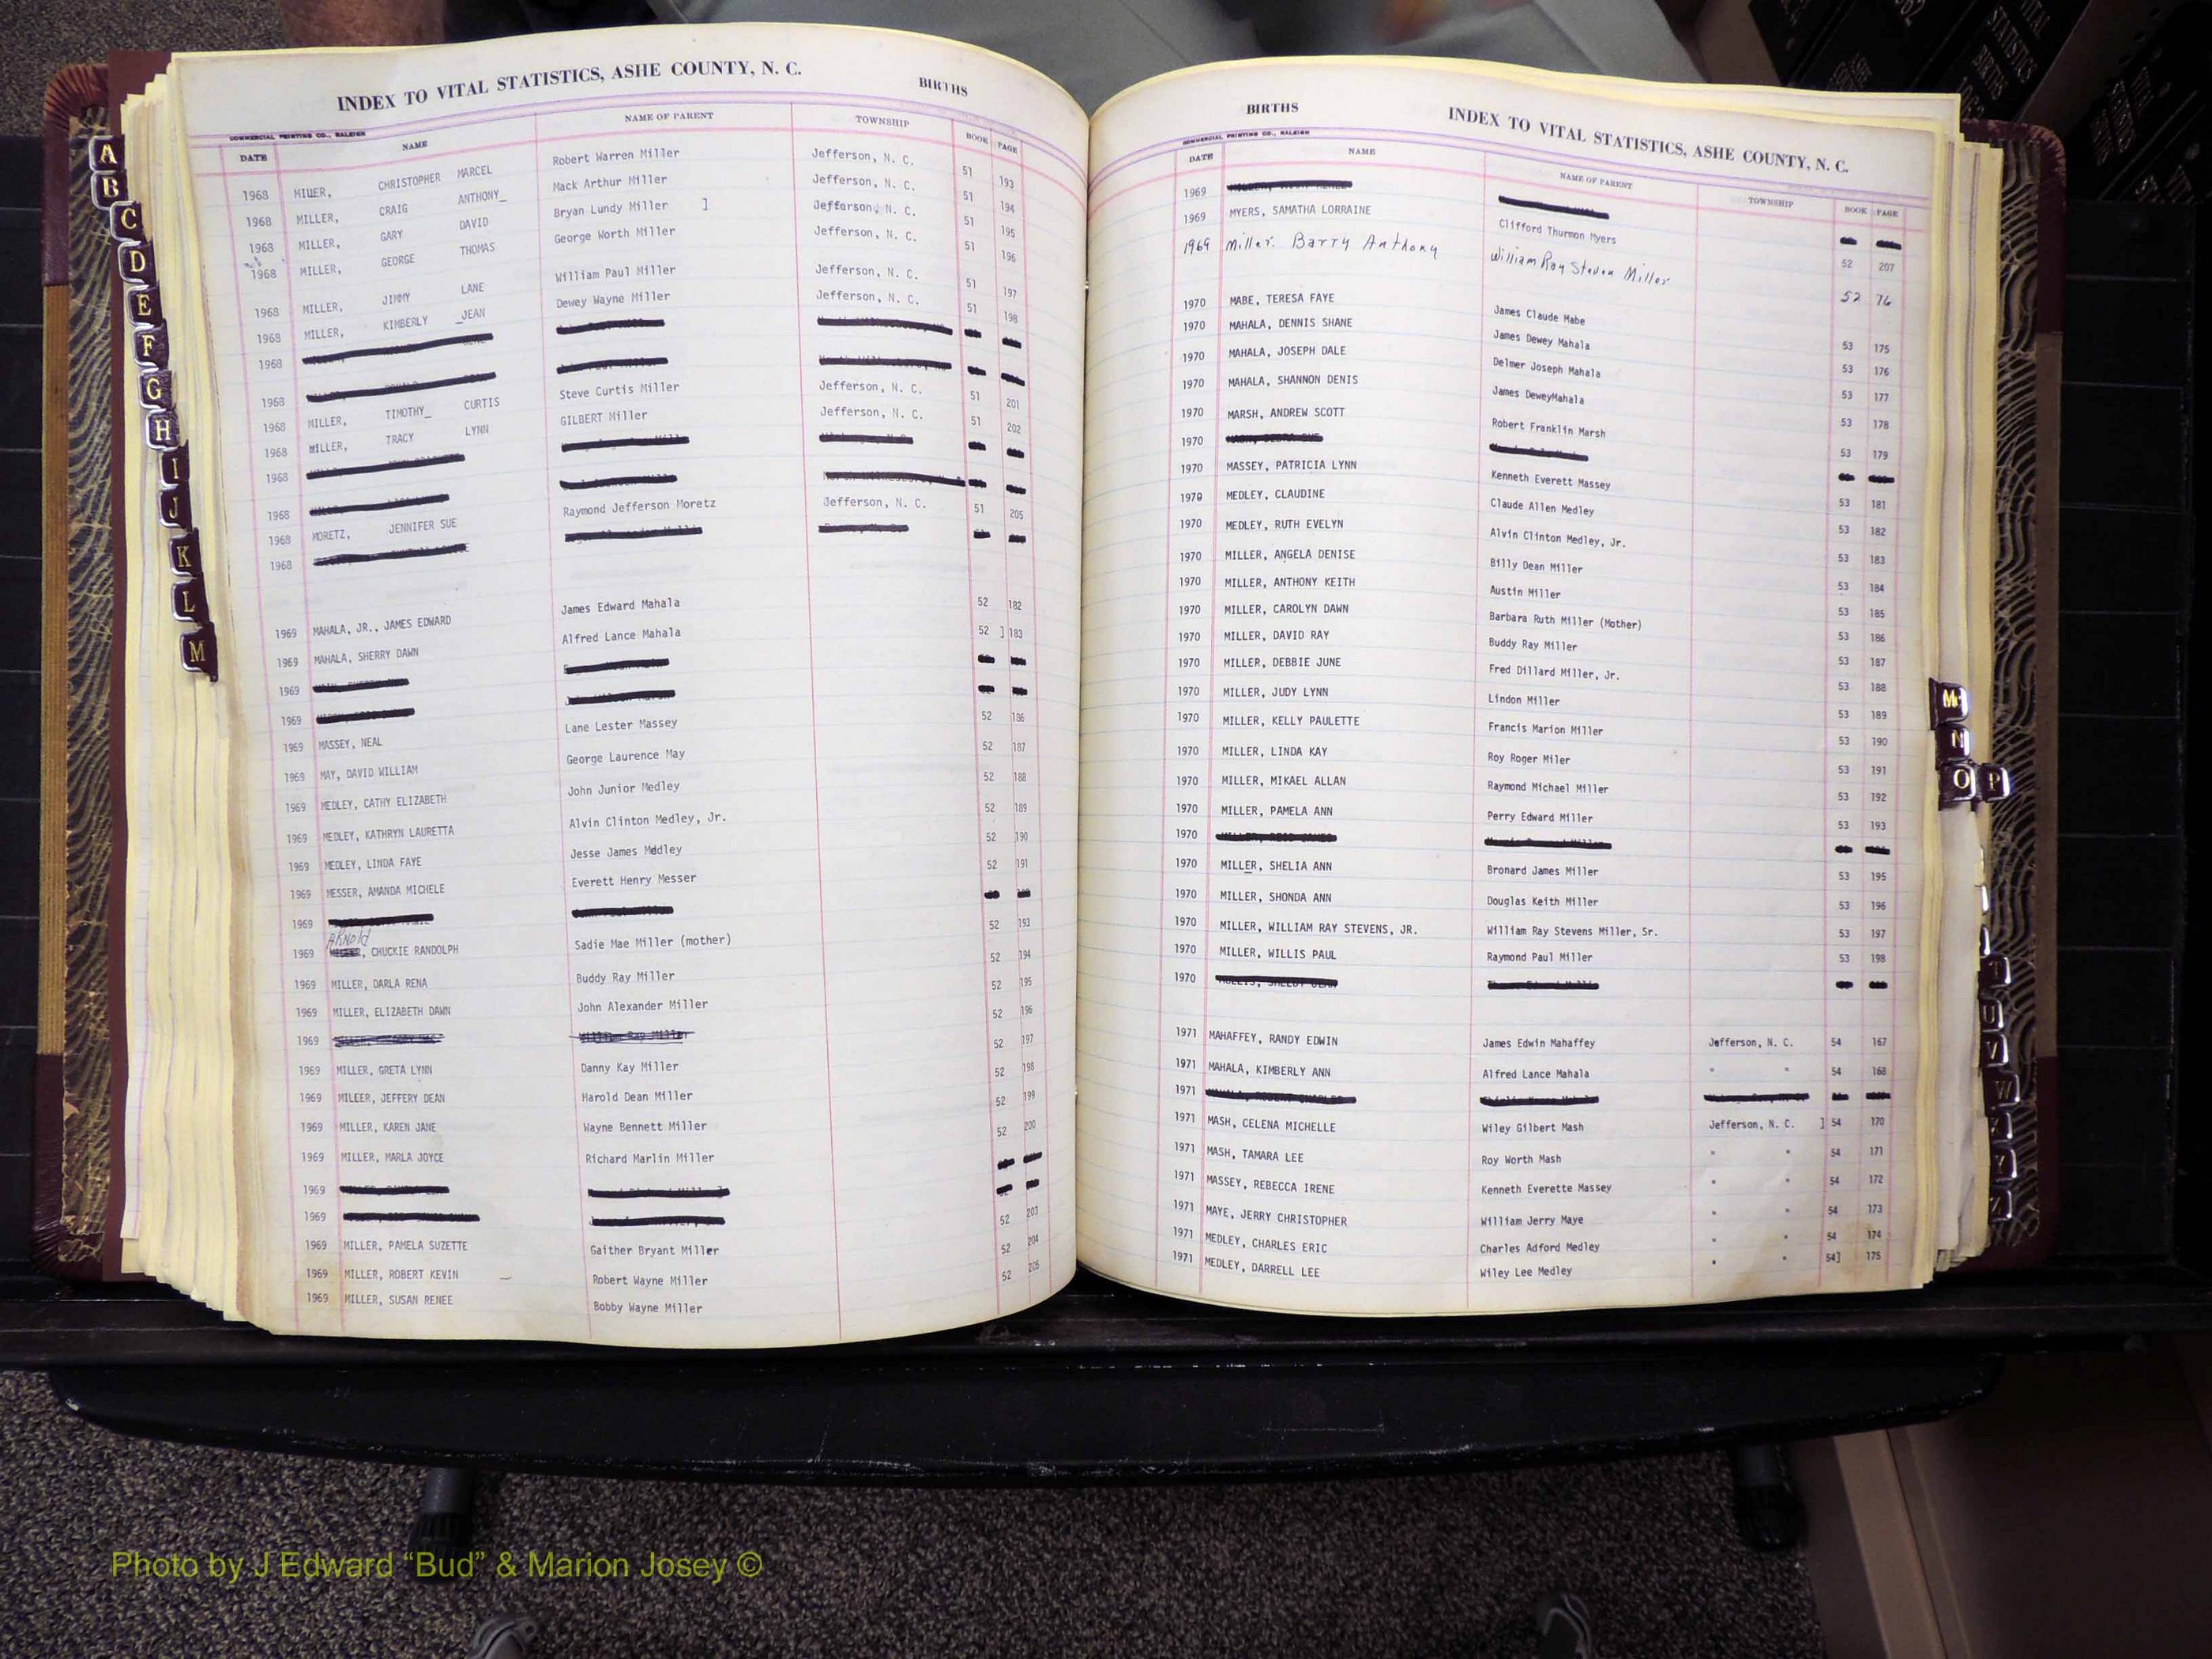 INDEX TO VITAL STATISTICS, ASHE COUNTY, N. C.
BIRTHS
COMMERCIAL PRINTING CO., RALEIGH
DATE NAME NAME OF PARENT TOWNSHIP BOOK PAGE
1968 MILLER, CHRISTOPHER MARCEL Robert Warren Miller Jefferson, N. C. 51 193
1968 MILLER, CRAIG ANTHONY_ Mack Arthur Miller Jefferson, N. C. 51 194
1968 MILLER, GARY DAVID Bryan Lundy Miller ] Jefferson, N. C. 51 195
1968 MILLER, GEORGE THOMAS George Worth Miller Jefferson, N. C. 51 196
1968 MILLER, JIMMY LANE William Paul Miller Jefferson, N. C. 51 197
1968 MILLER, KIMBERLY _JEAN Dewey Wayne Miller Jefferson, N. C. 51 198
1968
1968
1968 MILLER, TIMOTHY_ CURTIS Steve Curtis Miller Jefferson, N. C. 51 201
1968 MILLER, TRACY LYNN GILBERT Miller Jefferson, N. C. 51 202
1968
1968
1968 MORETZ, JENNIFER SUE Raymond Jefferson Moretz Jefferson, N. C. 51 205
1968
1969 MAHALA, JR., JAMES EDWARD James Edward Mahala 52 182
1969 MAHALA, SHERRY DAWN Alfred Lance Mahala 52 ] 183
1969
1969
1969 MASSEY, NEAL Lane Lester Massey 52 186
1969 MAY, DAVID WILLIAM George Laurence May 52 187
1969 MEDLEY, CATHY ELIZABETH John Junior Medley 52 188
1969 MEDLEY, KATHRYN LAURETTA Alvin Clinton Medley, Jr. 52 189
1969 MEDLEY, LINDA FAYE Jesse James Medley 52 190
1969 MESSER, AMANDA MICHELE Everett Henry Messer 52 191
1969
Arnold
1969 , CHUCKIE RANDOLPH Sadie Mae Miller (mother) 52 193
1969 MILLER, DARLA RENA Buddy Ray Miller 52 194
1969 MILLER, ELIZABETH DAWN John Alexander Miller 52 195
1969 William Ray Miller 52 196
1969 MILLER, GRETA LYNN Danny Kay Miller 52 197
1969 MILEER, JEFFERY DEAN Harold Dean Miller 52 198
1969 MILLER, KAREN JANE Wayne Bennett Miller 52 199
1969 MILLER, MARLA JOYCE Richard Marlin Miller 52 200
1969
1969
1969 MILLER, PAMELA SUZETTE Gaither Bryant Miller 52 203
1969 MILLER, ROBERT KEVIN Robert Wayne Miller 52 204
1969 MILLER, SUSAN RENEE Bobby Wayne Miller 52 205
BIRTHS
INDEX TO VITAL STATISTICS, ASHE COUNTY, N. C.
COMMERCIAL PRINTING CO., RALEIGH
DATE NAME NAME OF PARENT TOWNSHIP BOOK PAGE
1969
1969 MYERS, SAMATHA LORRAINE Clifford Thurmon Myers 52 207
1969 Miller. Barry Anthony William Ray Steven Miller 52 76
1970 MABE, TERESA FAYE James Claude Mabe 53 175
1970 MAHALA, DENNIS SHANE James Dewey Mahala 53 176
1970 MAHALA, JOSEPH DALE Delmer Joseph Mahala 53 177
1970 MAHALA, SHANNON DENIS James DeweyMahala 53 178
1970 MARSH, ANDREW SCOTT Robert Franklin Marsh 53 179
1970
1970 MASSEY, PATRICIA LYNN Kenneth Everett Massey 53 181
1970 MEDLEY, CLAUDINE Claude Allen Medley 53 182
1970 MEDLEY, RUTH EVELYN Alvin Clinton Medley, Jr. 53 183
1970 MILLER, ANGELA DENISE Billy Dean Miller 53 184
1970 MILLER, ANTHONY KEITH Austin Miller 53 185
1970 MILLER, CAROLYN DAWN Barbara Ruth Miller (Mother) 53 186
1970 MILLER, DAVID RAY Buddy Ray Miller 53 187
1970 MILLER, DEBBIE JUNE Fred Dillard Miller, Jr. 53 188
1970 MILLER, JUDY LYNN Lindon Miller 53 189
1970 MILLER, KELLY PAULETTE Francis Marion Miller 53 190
1970 MILLER, LINDA KAY Roy Roger Miler 53 191
1970 MILLER, MIKAEL ALLAN Raymond Michael Miller 53 192
1970 MILLER, PAMELA ANN Perry Edward Miller 53 193
1970
1970 MILLER, SHELIA ANN Bronard James Miller 53 195
1970 MILLER, SHONDA ANN Douglas Keith Miller 53 196
1970 MILLER, WILLIAM RAY STEVENS, JR. William Ray Stevens Miller, Sr. 53 197
1970 MILLER, WILLIS PAUL Raymond Paul Miller 53 198
1970
1971 MAHAFFEY, RANDY EDWIN James Edwin Mahaffey Jefferson, N. C. 54 167
1971 MAHALA, KIMBERLY ANN Alfred Lance Mahala " " 54 168
1971
1971 MASH, CELENA MICHELLE Wiley Gilbert Mash Jefferson, N. C. ] 54 170
1971 MASH, TAMARA LEE Roy Worth Mash " " 54 171
1971 MASSEY, REBECCA IRENE Kenneth Everette Massey " " 54 172
1971 MAYE, JERRY CHRISTOPHER William Jerry Maye " " 54 173
1971 MEDLEY, CHARLES ERIC Charles Adford Medley " " 54 174
1971 MEDLEY, DARRELL LEE Wiley Lee Medley " " 54] 175
A
B
C
D
E
F
G
H
I
J
K
L
M
Mc
N
O
P
T
U
V
W
X
Y
Z
VITAL STATISTICS BIRTH
Photo by J Edward “Bud” & Marion Josey ©